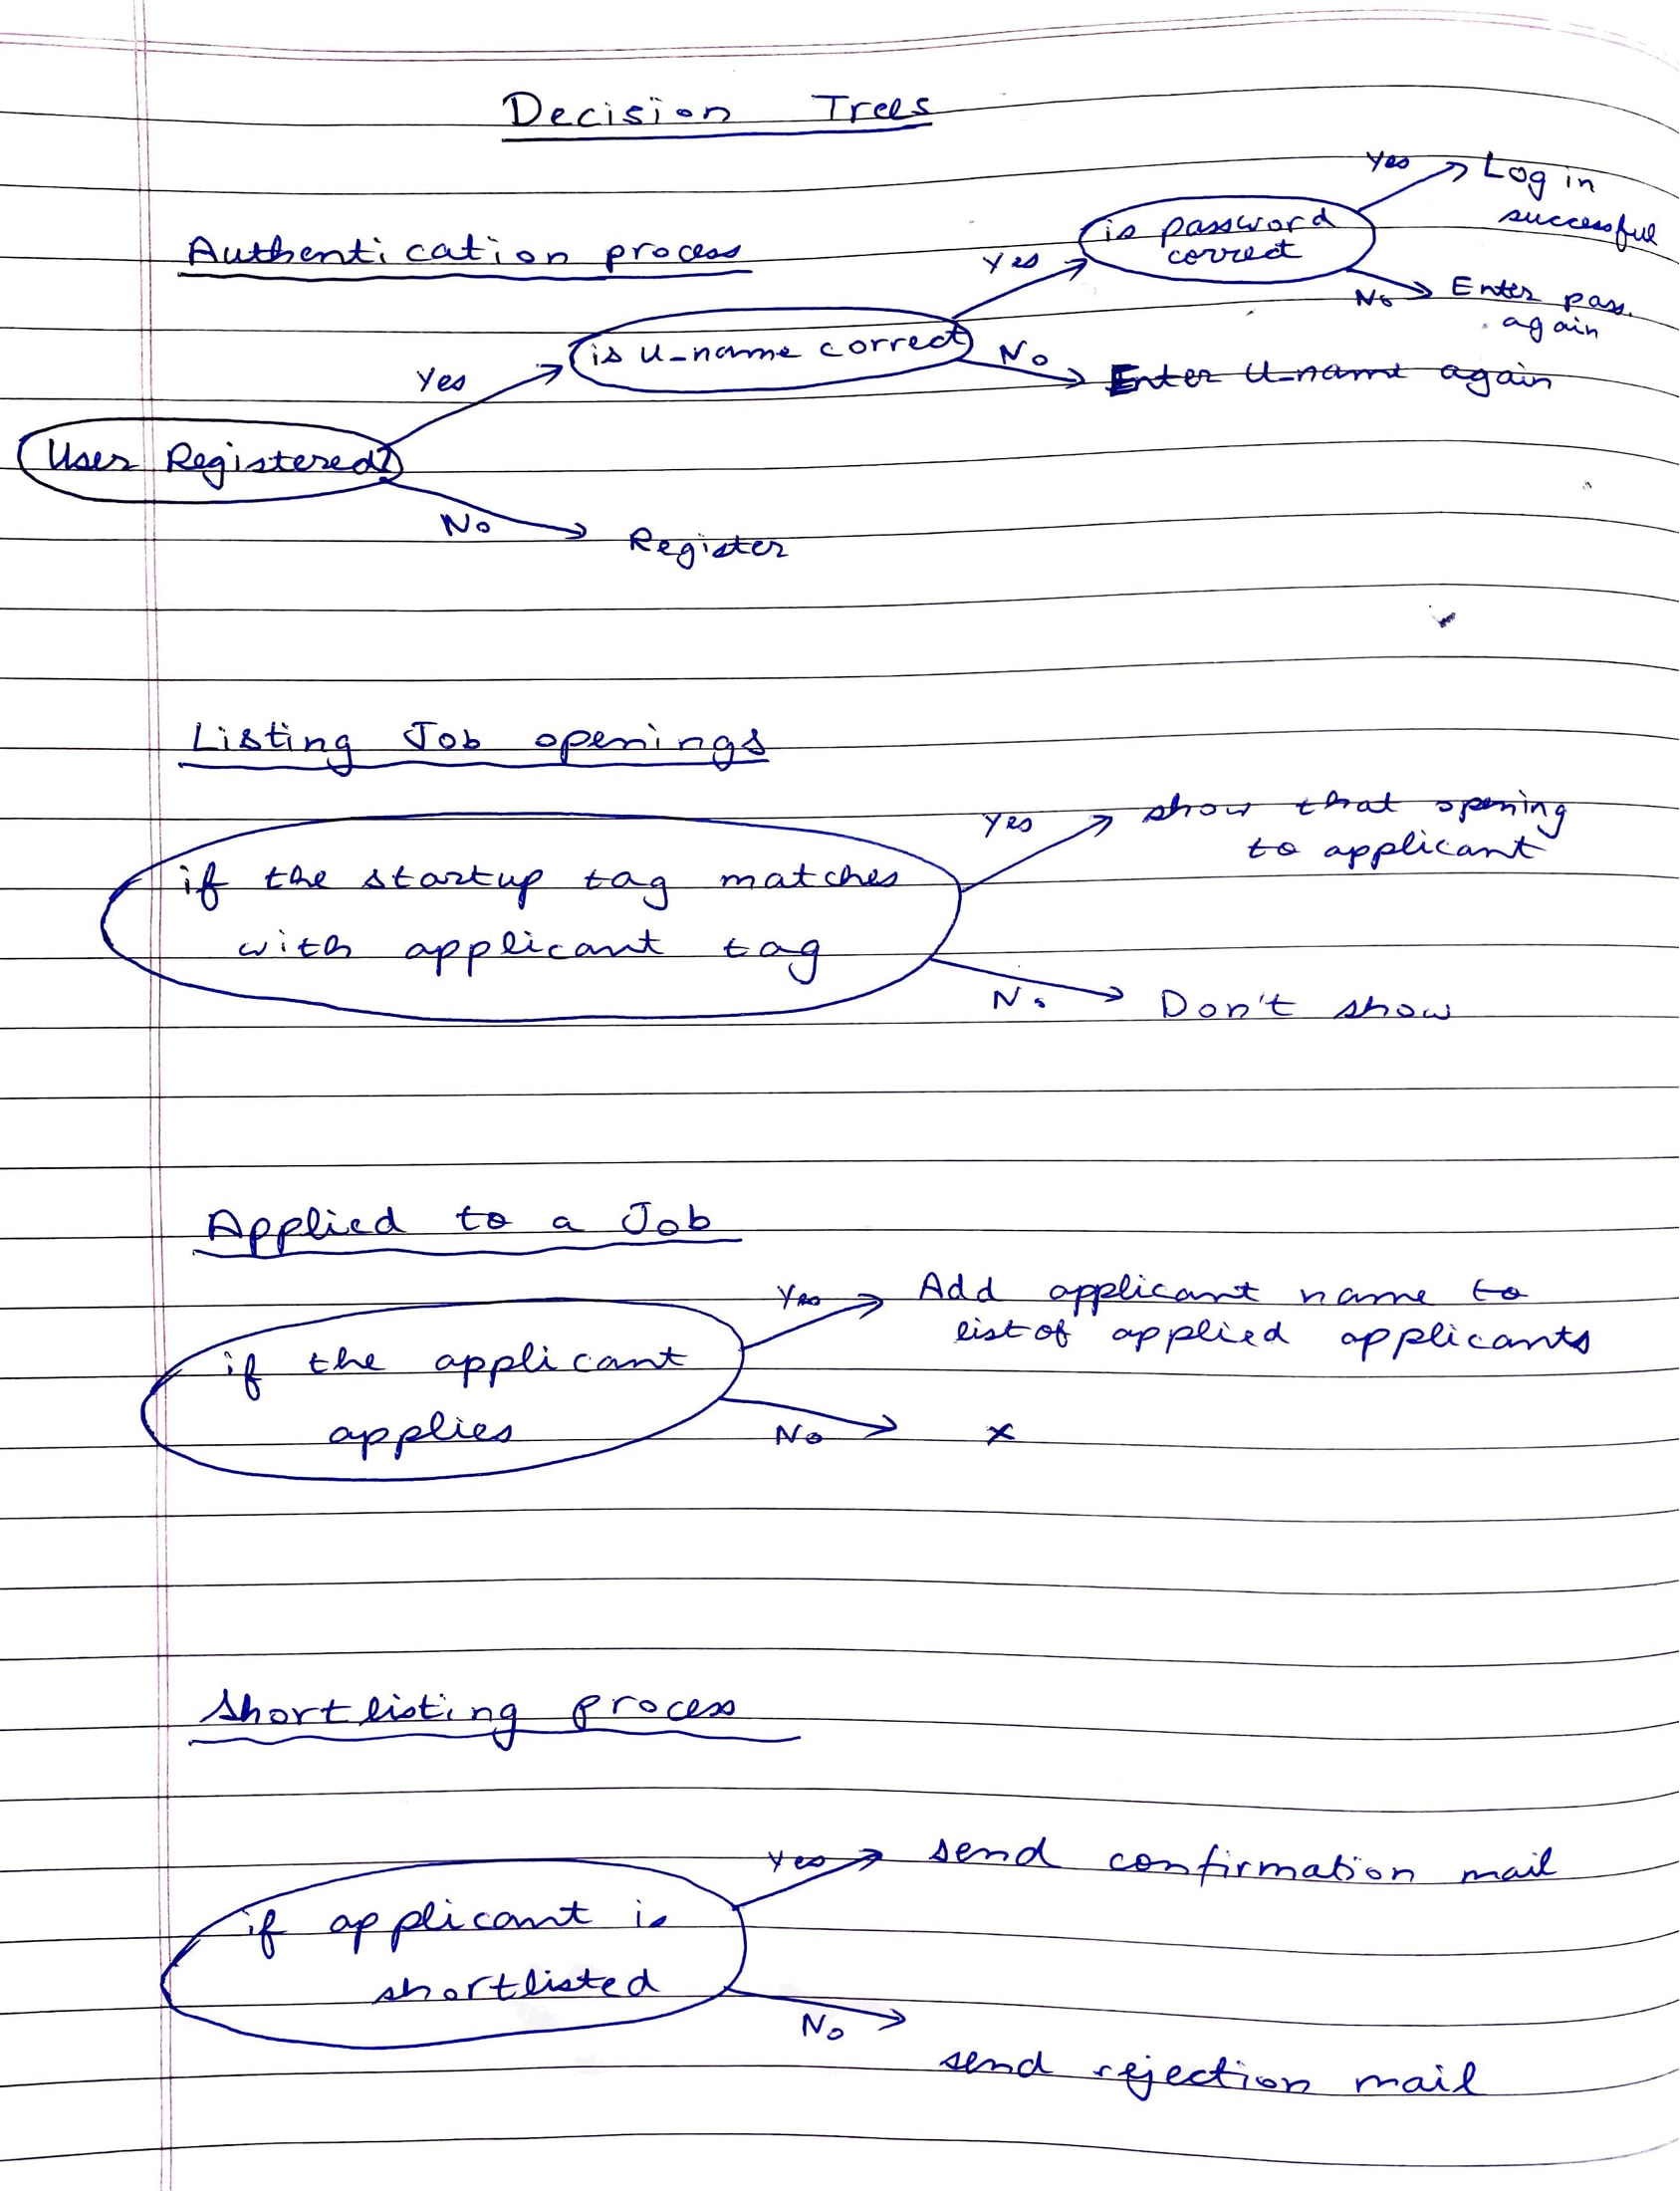 Decision Trees
Authentication process
User Registered?
Yes
No
Register
is U-name correct
Yes
No
Enter U-name again
is password
correct
Yes
Log in
successful
No
Enter pass.
again
Listing Job openings
if the startup tag matches
with applicant tag
Yes
show that opening
to applicant
No
Don't show
Applied to a Job
if the applicant
applies
Yes
Add applicant name to
list of applied applicants
No
x
Shortlisting process
if applicant is
shortlisted
Yes
send confirmation mail
No
send rejection mail